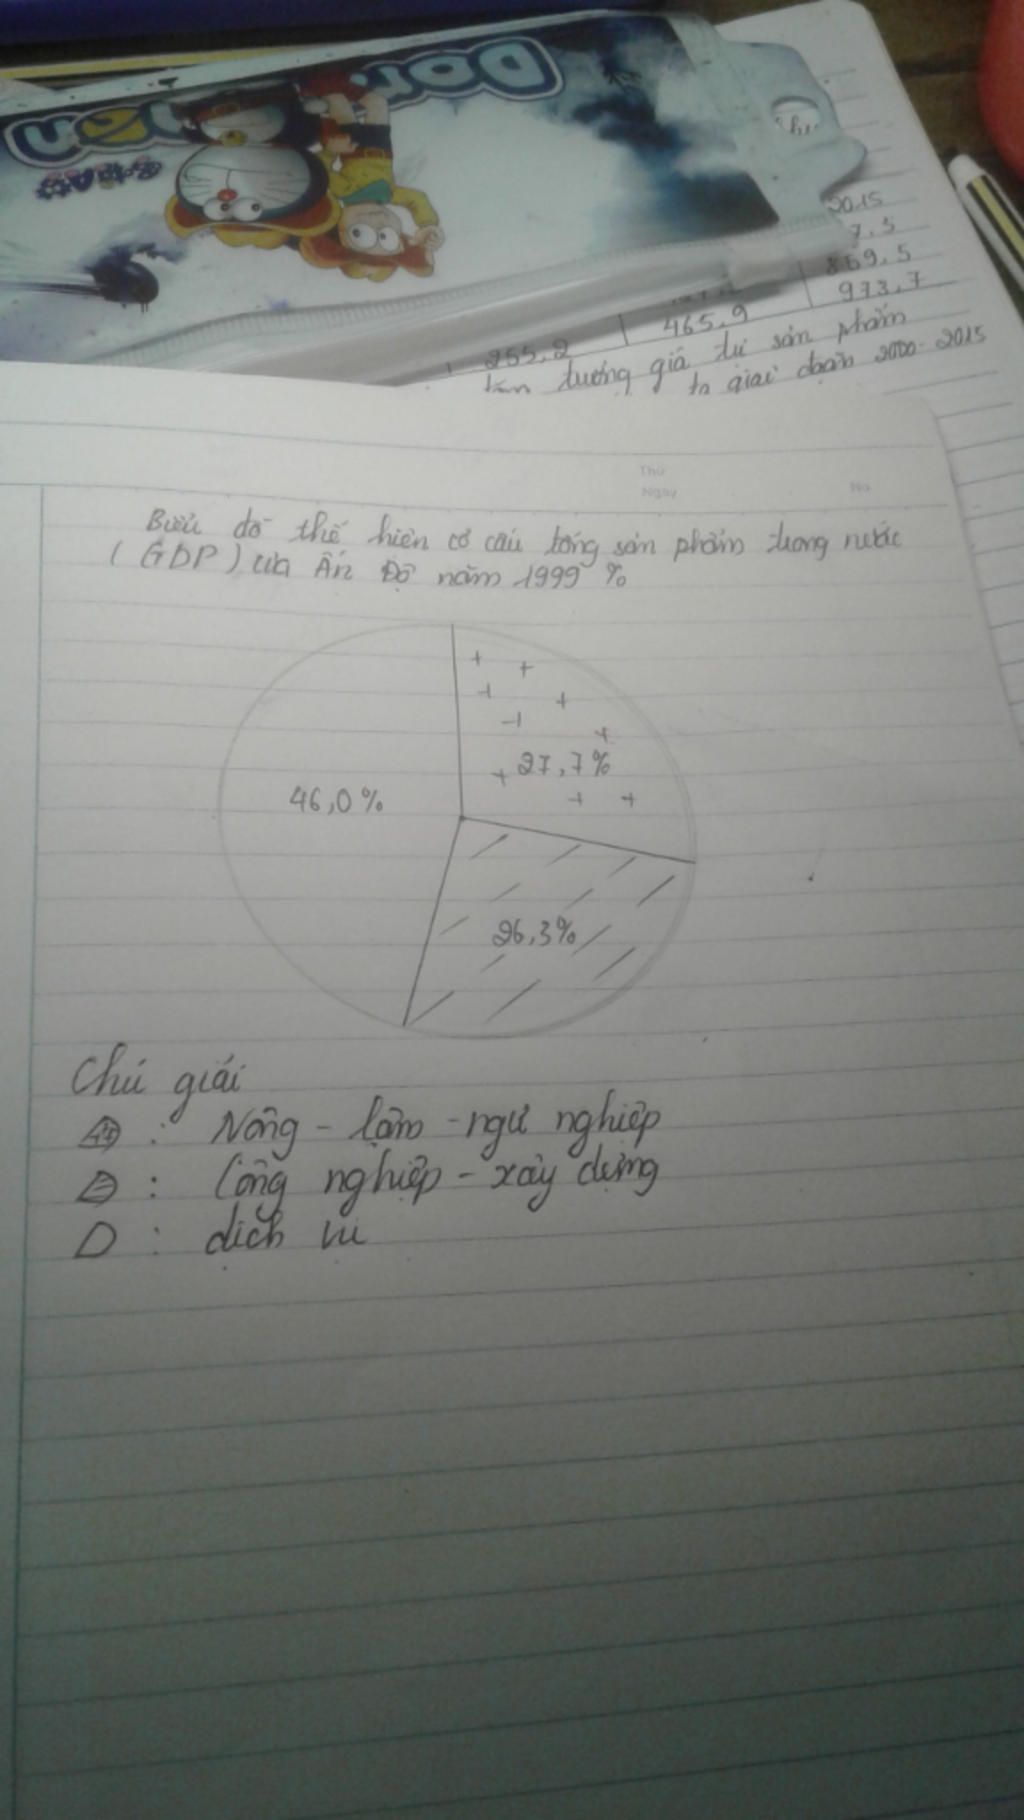 2015
7,5
869,5
255,2 465,9 973,7
tướng giá trị sản phẩm
giai đoạn 2000-2015
Thứ
Ngày No
Biểu đồ thể hiện cơ cấu tổng sản phẩm trong nước
(GDP) của Ấn Độ năm 1999 %
27,7%
46,0%
26,3%
Chú giải
: Nông - lâm - ngư nghiệp
: Công nghiệp - xây dựng
: dịch vụ